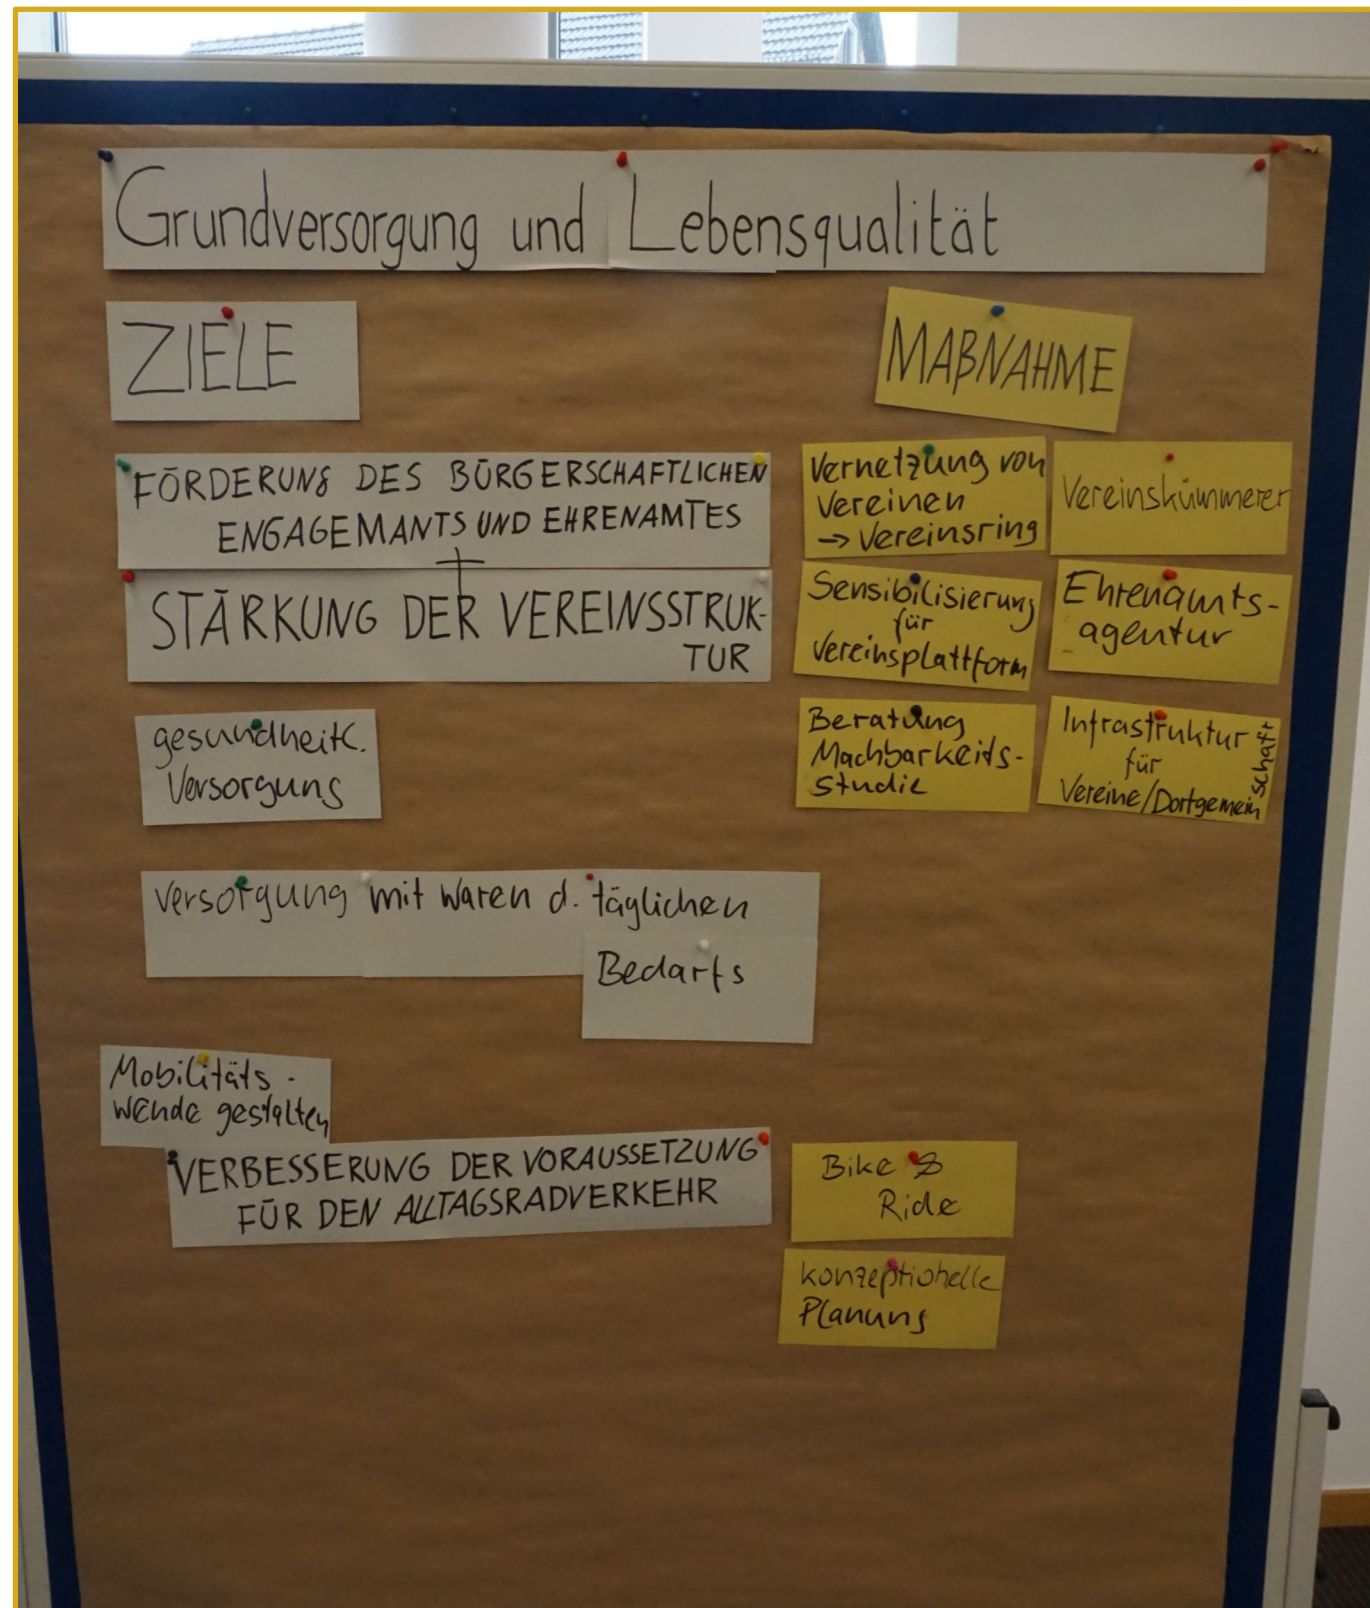 Grundversorgung und Lebensqualität
ZIELE
MAßNAHME
FÖRDERUNG DES BÜRGERSCHAFTLICHEN
ENGAGEMANTS UND EHRENAMTES
+
STÄRKUNG DER VEREINSSTRUK-
TUR
Vernetzung von
Vereinen
→ Vereinsring
Vereinskümmerer
Sensibilisierung
für
Vereinsplattform
Ehrenamts-
agentur
gesundheitl.
Versorgung
Beratung
Machbarkeits-
studie
Infrastruktur
für
Vereine/Dorfgemein
schaft
Versorgung mit Waren d. täglichen
Bedarfs
Mobilitäts-
wende gestalten
VERBESSERUNG DER VORAUSSETZUNG
FÜR DEN ALLTAGSRADVERKEHR
Bike &
Ride
konzeptionelle
Planung